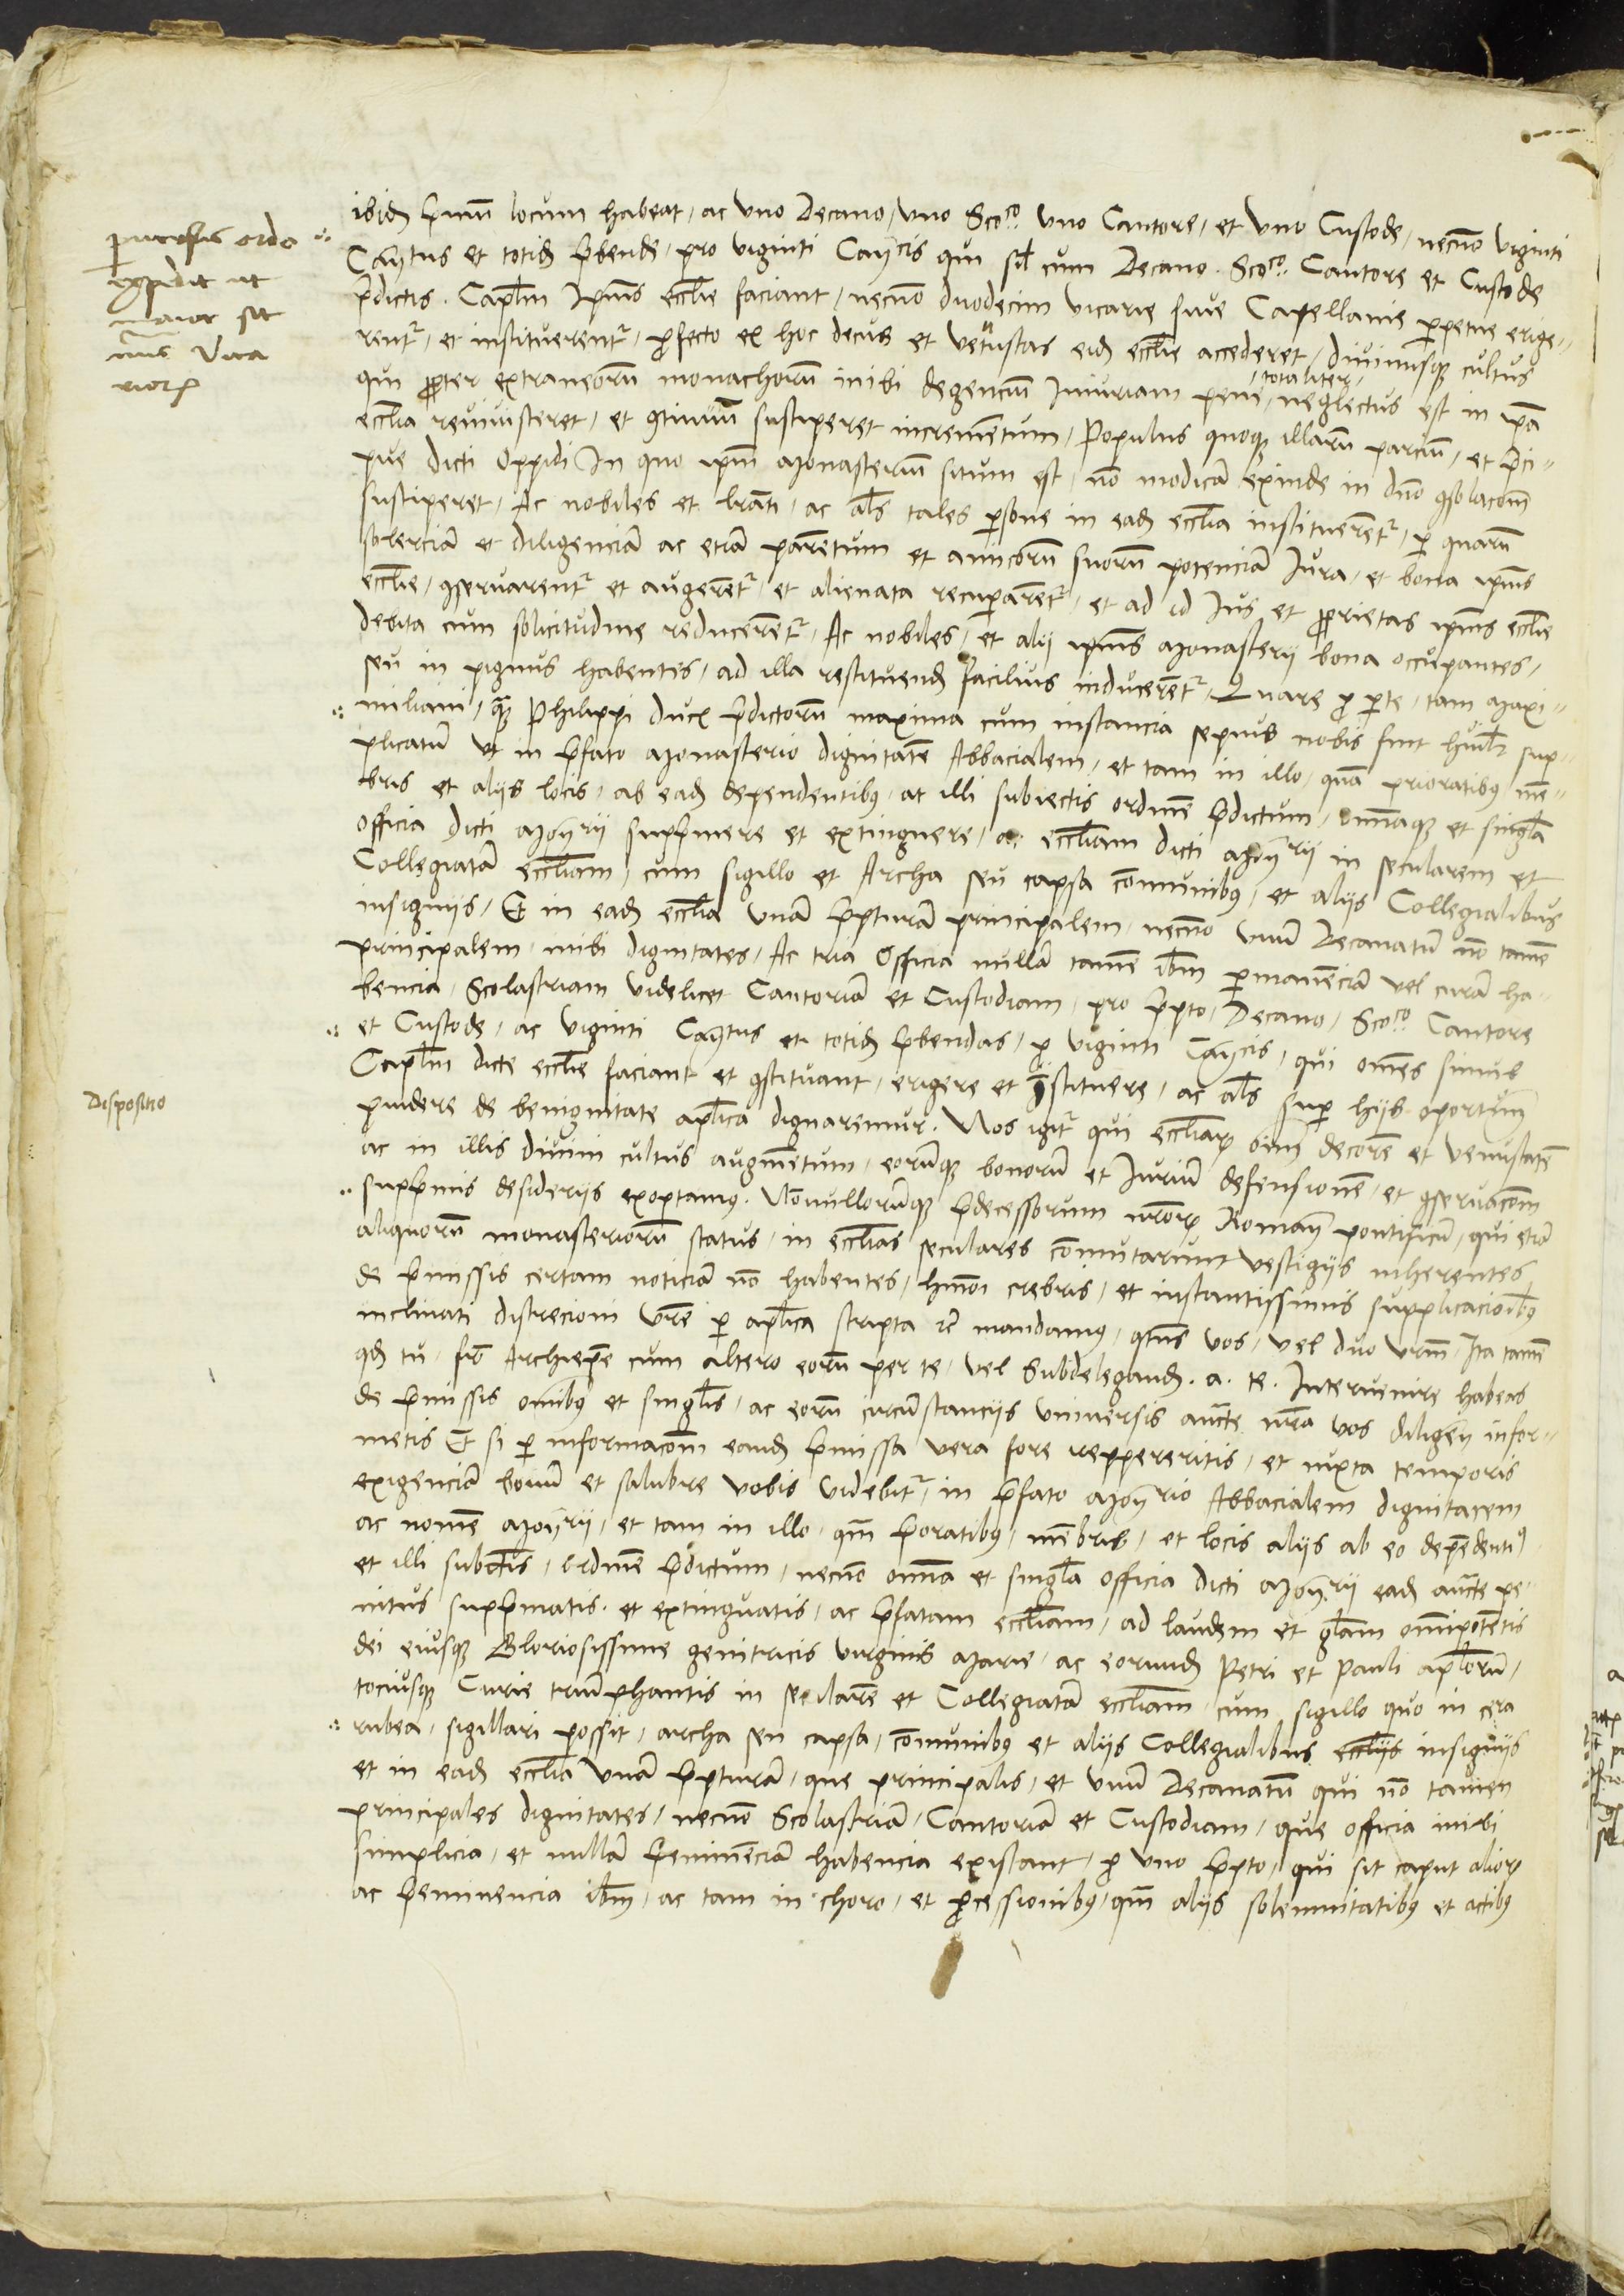 ordo
expedit ut
maior sit
Vica
riorum
ibidem primum locum habeat, ac Uno Decano, Uno Sco.co Uno Cantore, et Uno Custode, necnon viginti
Can.tus et totidem prebende, pro viginti Can.cis qui simul cum Decano. Sco.co. Cantore et Custode
predictis. Capitulum Ipsius ecclesie faciant, necnon duodecim vicarie sive Capellanie perpetue erige-
rentur, et instituerentur, profecto ex hoc decus et venustas eidem ecclesie accederet, divinusque cultus
qui propter extraneorum monachorum inibi degencium Iniuriam pene totaliter neglectus est in ipsa
ecclesia revivisceret, et continuum susciperet incrementum, Populus quoque illarum parcium, et preci-
pue dicti Oppidi In quo ipsum Monasterium situm est, non modicam exinde in domino consolacionem
susciperet, Ac nobiles et litterati, ac alias tales persone in eadem ecclesia instituerentur, per quarum
solerciam et diligenciam ac etiam parentum et amicorum suorum potenciam Iura, et bona ipsius
ecclesie, conservarentur et augerentur, et alienata recuperarentur, et ad id Ius et proprietas ipsius ecclesie
debita cum solicitudine reducerentur, Ac nobiles, et alii ipsius Monasterii bona occupantes,
seu in pignus habentes, ad illa restituendum facilius inducerentur, Quare pro parte, tam Maxi-
miliani, quam Philippi ducum predictorum maxima cum instancia sepius nobis fuit humiliter sup-
plicatum ut in prefato Monasterio dignitatem Abbacialem, et tam in illo, quam prioratibus mem-
bris et aliis locis, ab eadem dependentibus, ac illi subiectis ordinem predictum, omniaque et singula
officia dicti Mon.rii supprimere et extinguere, ac ecclesiam dicti Mon.rii in secularem et
Collegiatam ecclesiam, cum sigillo et Archa seu capsa communibus, et aliis Collegialibus
insigniis, Et in eadem ecclesia Unam preposituram principalem, necnon Unum Decanatum non tamen
principalem, inibi dignitates, Ac tria Officia nullam tamen ibidem preeminenciam vel curam ha-
bencia, Scolastriam videlicet Cantoriam et Custodiam, pro preposito, Decano, Sco.co Cantore
et Custode, ac viginti Can.tus et totidem prebendas, pro viginti Can.cis, qui omnes simul
Capitulum dicte ecclesie faciant et constituant, erigere et instituere, ac alias super hiis oportunum
Dispositio
providere de benignitate apostolica dignaremur. Nos igitur qui ecclesiarum omnium decorem et venustatem
ac in illis divini cultus augmentum, eorumque bonorum et Iurium defensionem, et conservacionem
supremis desideriis exoptamus. Nonnullorumque predecessorum nostrorum Romanorum pontificum, qui etiam
aliquorum monasteriorum status, in ecclesias seculares commutarunt vestigiis inherentes
de premissis certam noticiam non habentes, huiusmodi crebris, et instantissimis supplicacionibus
inclinati discrecioni vestre per apostolica scripta etc mandamus, quatenus vos, vel duo vestrum, Ita tamen
quod tu, frater Archiepiscope cum altero eorum per te, vel Subdelegandum. a. te. Intervenire habeas
de premissis omnibus et singulis, ac eorum circumstanciis universis auctoritate nostra vos diligenter infor-
metis Et si per informacionem eandem premissa vera fore reppereritis, et iuxta temporis
exigenciam bonum et salubre vobis videbitur, in prefato Mon.rio Abbacialem dignitatem
ac nomen Mon.rii, et tam in illo, quam prioratibus, membris, et locis aliis ab eo dependentibus
et illi subiectis, ordinem predictum, necnon omnia et singula officia dicti Mon.rii eadem auctoritate pe-
nitus supprimatis, et extinguatis, ac prefatam ecclesiam, ad laudem et gloriam omnipotentis
dei eiusque Gloriosissime genitricis virginis Marie, ac eorundem Petri et Pauli apostolorum,
tociusque Curie triumphantis in secularem et Collegiatam ecclesiam, cum sigillo quo in cera
rubea, sigillari possit, archa seu capsa, communibus et aliis Collegialibus ecclesiis insigniis
et in eadem ecclesia Unam preposituram, que principalis, et Unum Decanatum qui non tamen
principales dignitates, necnon Scolastriam, Cantoriam et Custodiam, que officia inibi
simplicia, et nullam preeminenciam habencia existant, pro Uno preposito, qui sit caput aliorum
ac preeminencia ibidem, ac tam in choro, et processionibus, quam aliis solemnitatibus et actibus